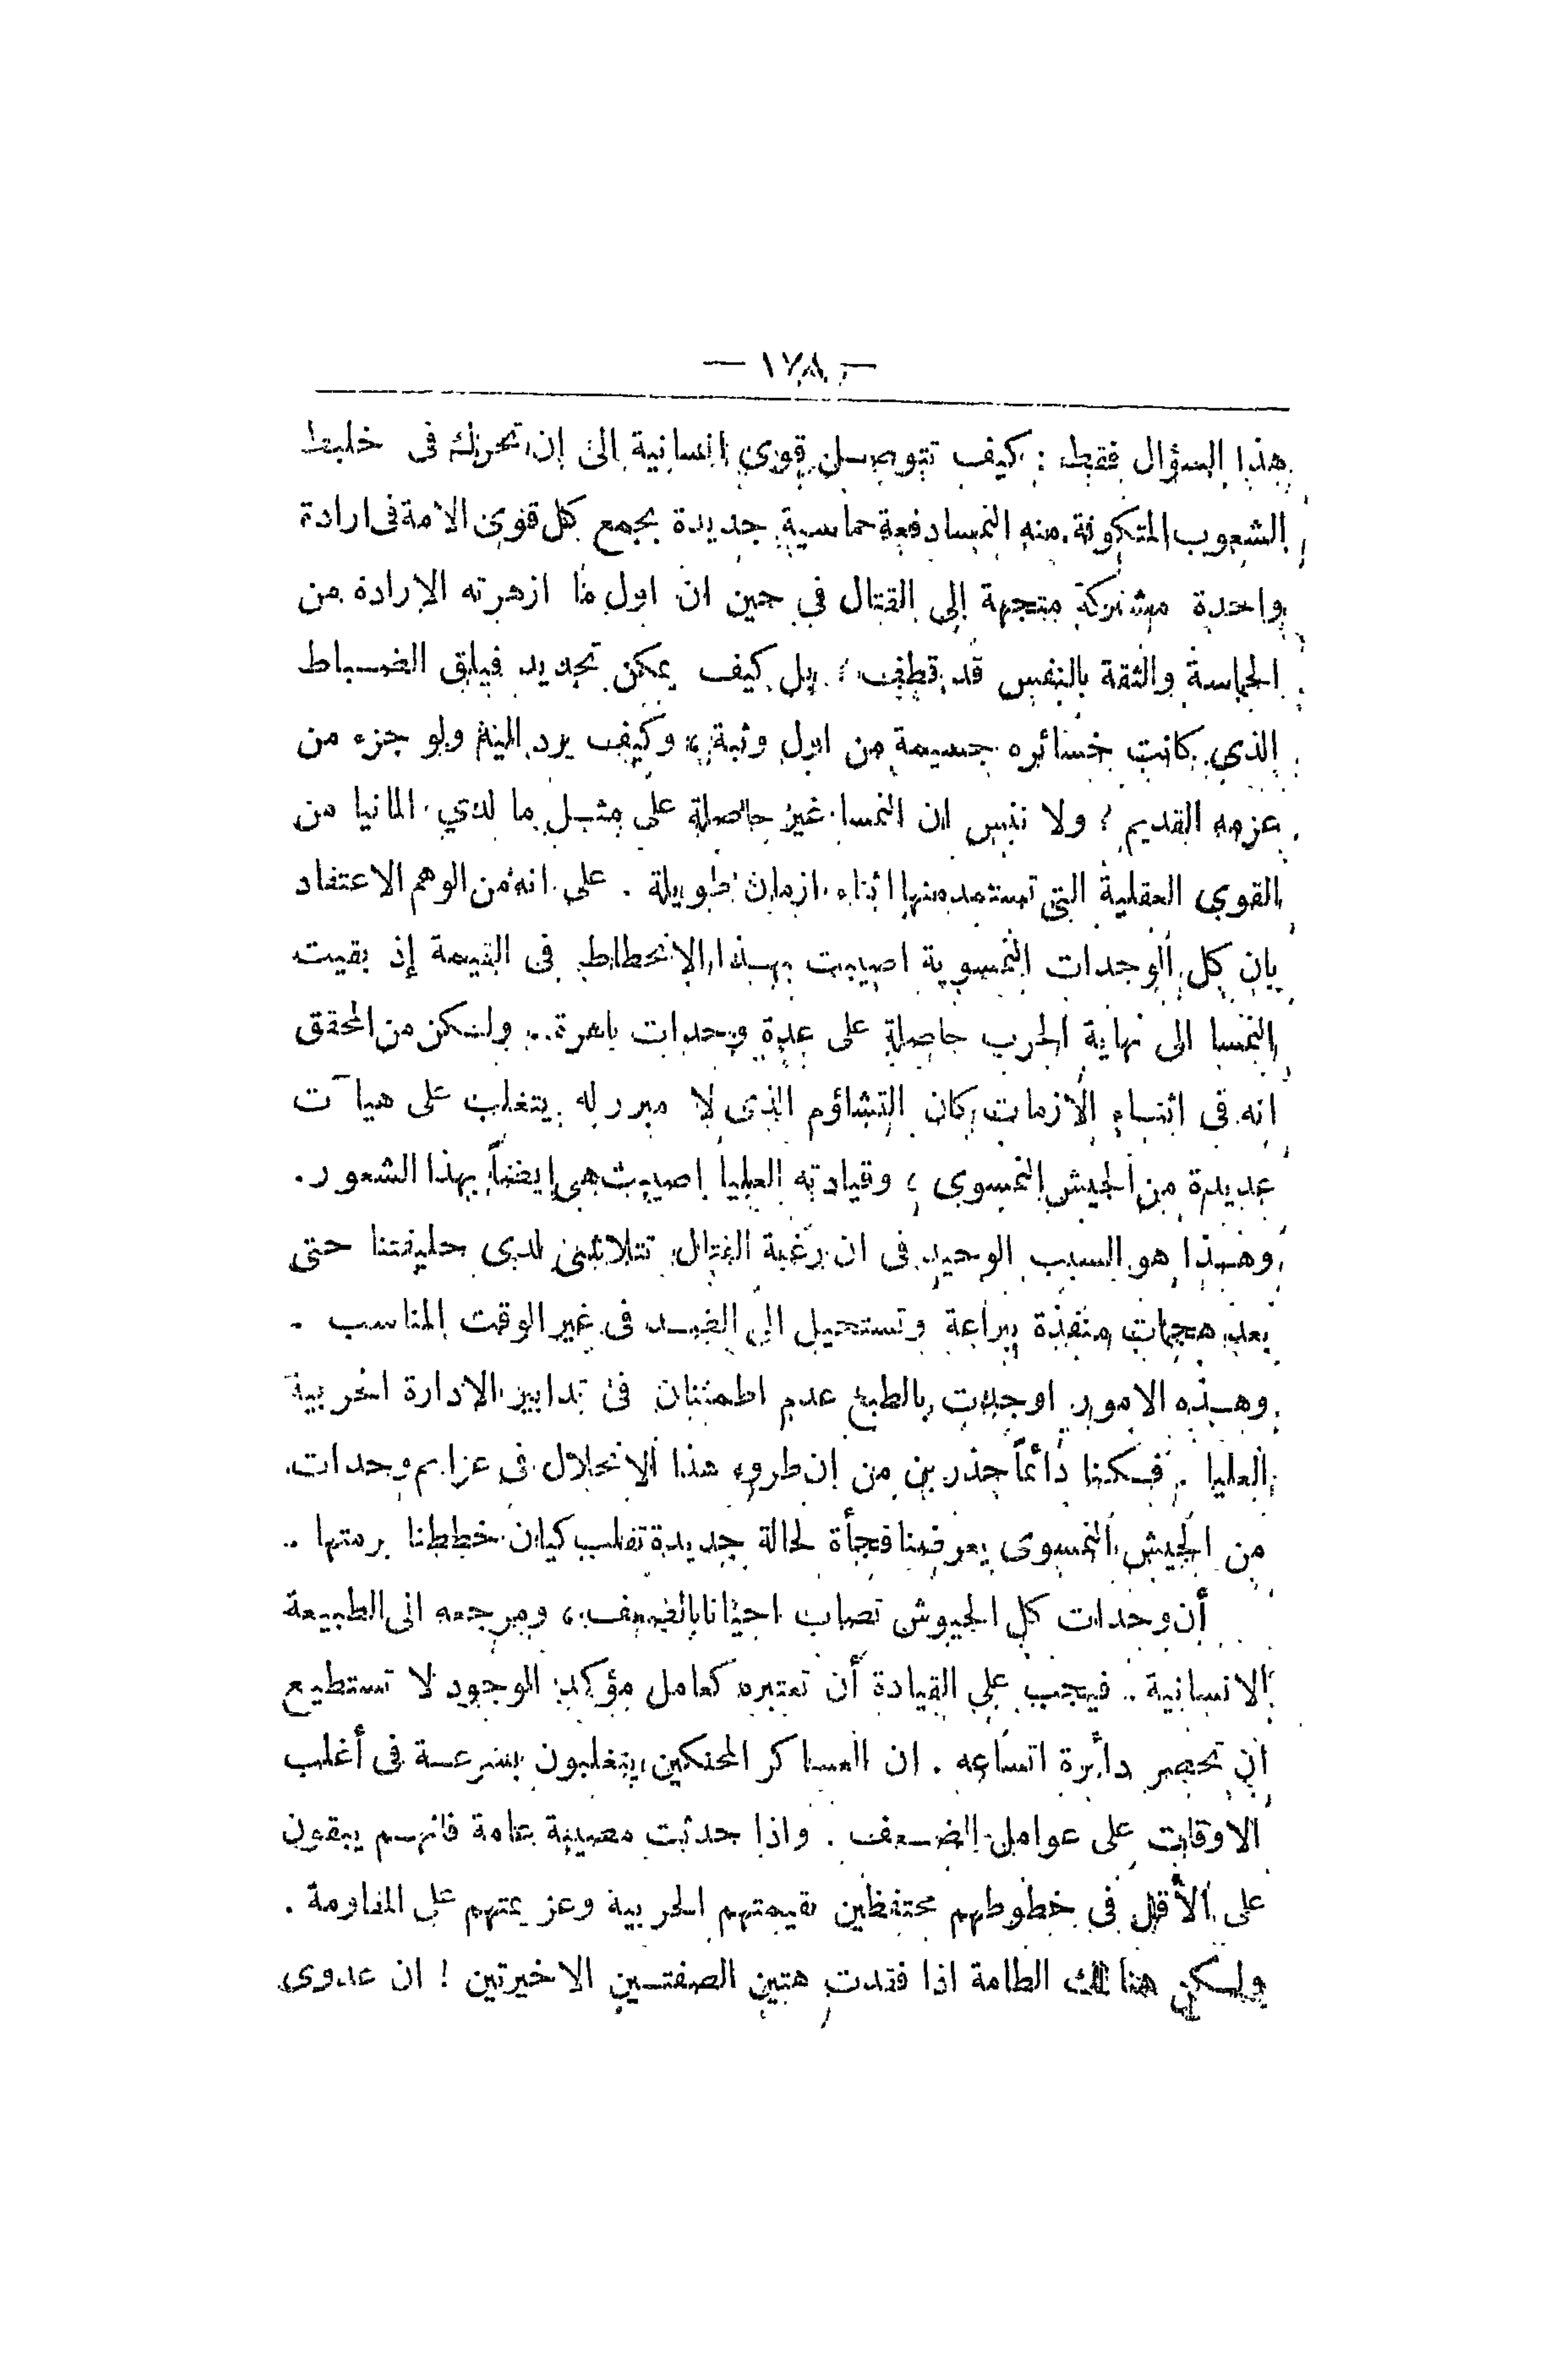 — ١٧٨ —
هذا السؤال فقط : كيف تتوصل قوى انسانية الى ان تحرك فى خليط
الشعوب المتكونة منه النمسا دفعة حماسية جديدة بجمع كل قوى الامة فى ارادة
واحدة مشتركة متجهة إلى القتال فى حين ان اول ما ازهرته الارادة من
الحماسة والثقة بالنفس قد قطف ؛ بل كيف يمكن تجديد فيلق الضباط
الذي كانت خسائره جسيمة من اول وثبة ، وكيف يرد اليه ولو جزء من
عزمه القديم ؛ ولا ننس ان النمسا غير حاصلة على مثل ما لدي المانيا من
القوي العقلية التى تستمد منها اثناء ازمان طويلة . على انه من الوهم الاعتقاد
بان كل الوحدات النمسوية اصيبت بهذا الانحطاط فى القيمة إذ بقيت
النمسا الى نهاية الحرب حاصلة على عدة وحدات باهرة . ولكن من المحقق
انه فى اثناء الازمات كان التشاؤم الذى لا مبرر له يتغلب على هيآت
عديدة من الجيش النمسوى ؛ وقيادته العليا اصيبت هى ايضاً بهذا الشعور .
وهذا هو السبب الوحيد فى ان رغبة القتال تتلاشى لدى حليفتنا حتى
بعد هجمات منفذة ببراعة وتستحيل الى الضد فى غير الوقت المناسب .
وهذه الامور اوجدت بالطبع عدم اطمئنان فى تدابير الادارة الحربية
العليا . فكنا دائماً حذرين من ان طروء هذا الانحلال فى عزايم وحدات
من الجيش النمسوى يعرضنا فجأة لحالة جديدة تقلب كيان خططنا برمتها .
أن وحدات كل الجيوش تصاب احيانا بالضعف ، ومرجعه الى الطبيعة
الانسانية . فيجب على القيادة أن تعتبره كعامل مؤكد الوجود لا تستطيع
ان تحصر دأئرة اتساعه . ان العساكر المحنكين يتغلبون بسرعة فى أغلب
الاوقات على عوامل الضعف . واذا حدثت مصيبة عامة فانهم يبقون
على الأقل فى خطوطهم محتفظين بقيمتهم الحربية وعزيمتهم على المقاومة .
ولكن هنالك الطامة اذا فقدت هتين الصفتين الاخيرتين ! ان عدوى